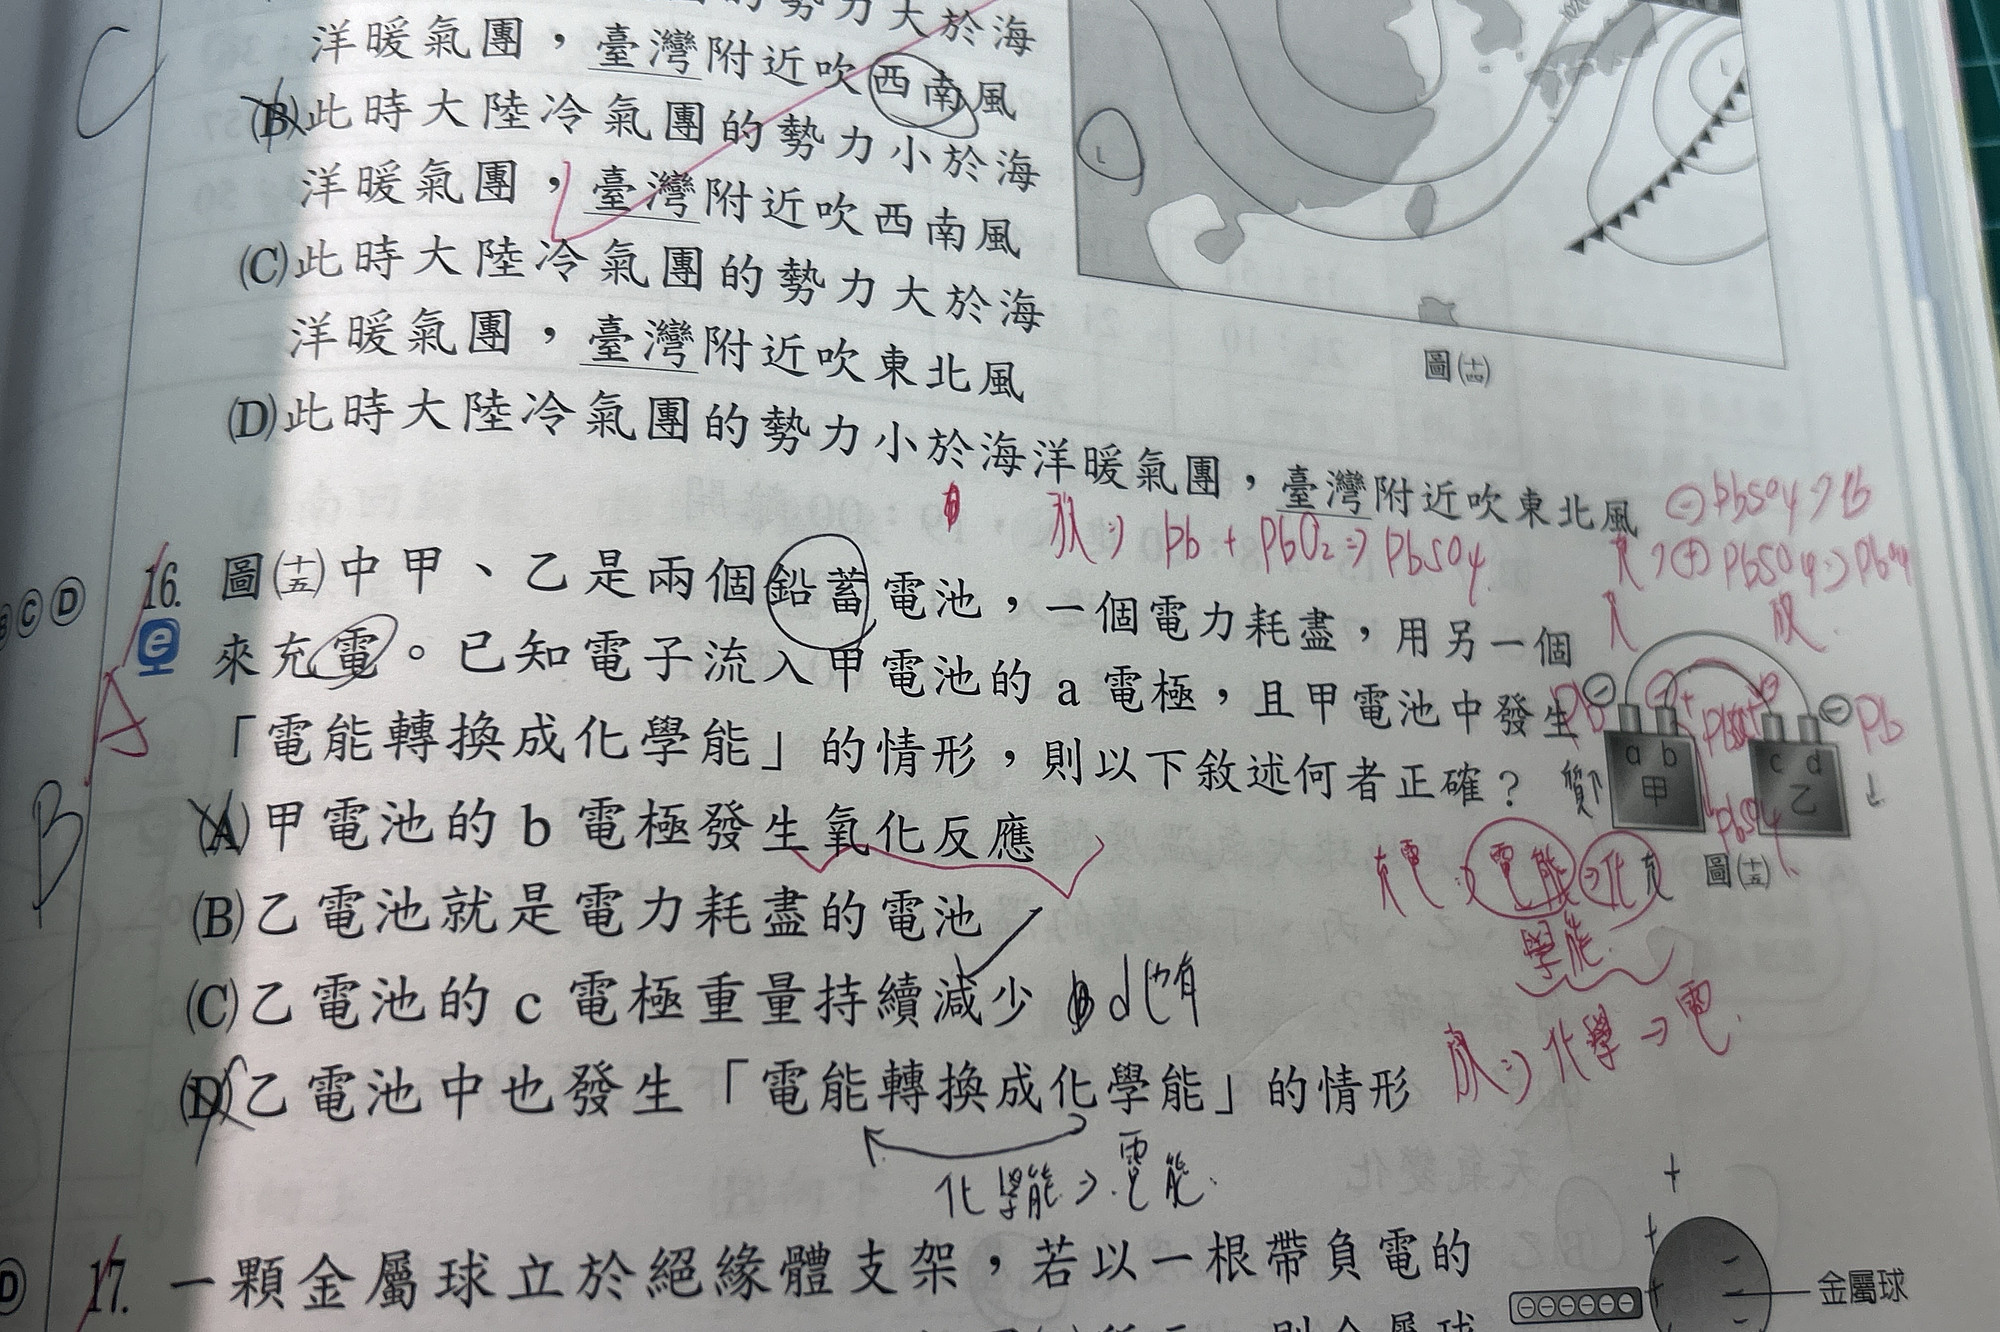 的勢力大於海
洋暖氣團，臺灣附近吹西南風
(B)此時大陸冷氣團的勢力小於海
洋暖氣團，臺灣附近吹西南風
(C)此時大陸冷氣團的勢力大於海
洋暖氣團，臺灣附近吹東北風
(D)此時大陸冷氣團的勢力小於海洋暖氣團，臺灣附近吹東北風
C
L
圖(十四)
放⇒ Pb + PbO2 ⇒ PbSO4
⊖PbSO4→Pb
充→⊕PbSO4→
16. 圖(十五)中甲、乙是兩個鉛蓄電池，一個電力耗盡，用另一個
來充電。已知電子流入甲電池的 a 電極，且甲電池中發生
「電能轉換成化學能」的情形，則以下敘述何者正確？
(A)甲電池的 b 電極發生氧化反應
(B)乙電池就是電力耗盡的電池
(C)乙電池的 c 電極重量持續減少
d也有
(D)乙電池中也發生「電能轉換成化學能」的情形
化學能→電能
A
B
C D
Pb
+
Pb
a b
甲
c d
乙
質↑
↓
PbSO4
圖(十五)
充電⇒電能⇒化
學能
放⇒化學→電
17. 一顆金屬球立於絕緣體支架，若以一根帶負電的
金屬球
D